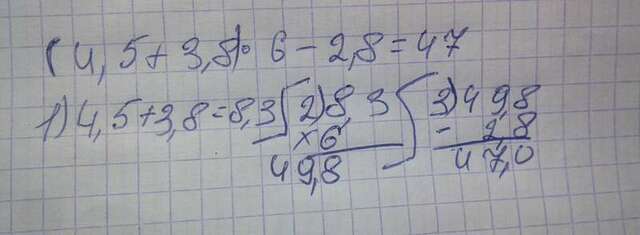 (4,5+3,8)• 6-2,8=47
1)4,5+3,8=8,3 2)8,3 3)49,8
×6 - 2,8
49,8 47,0